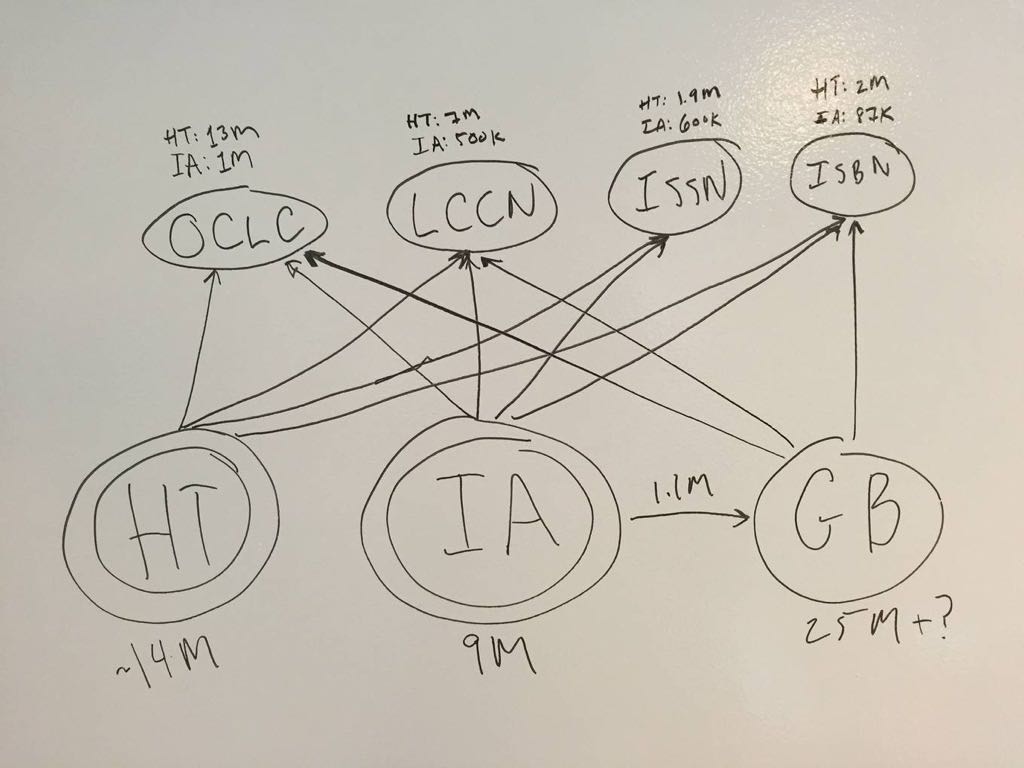 HT: 13M
IA: 1M
OCLC
HT: 7M
IA: 500K
LCCN
HT: 1.9M
IA: 600K
ISSN
HT: 2M
IA: 87K
ISBN
HT
~14M
IA
9M
1.1M
GB
25M+?